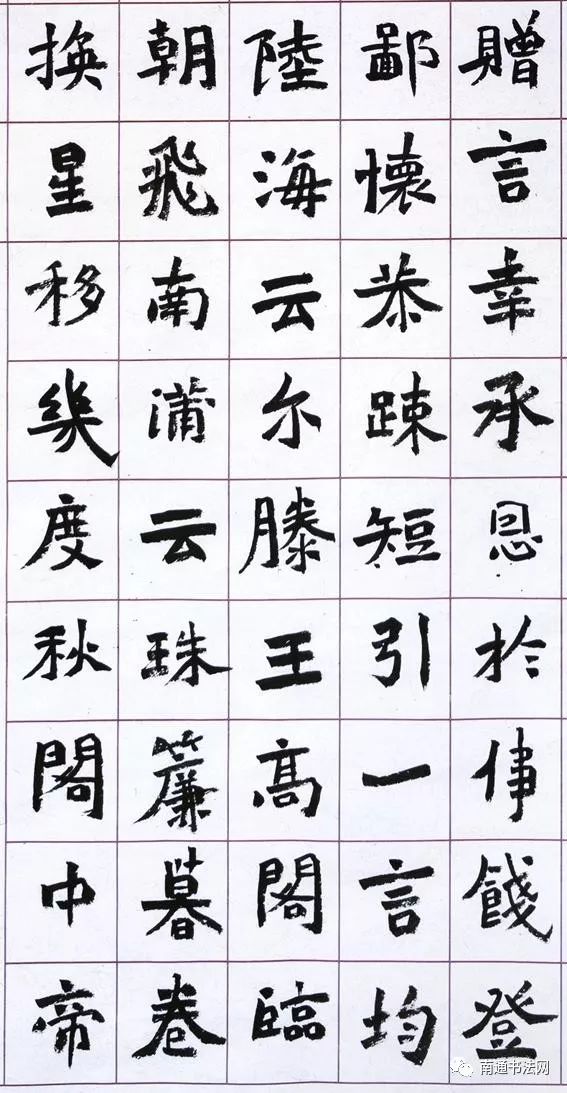 贈言幸承恩於偉餞登
鄙懷恭踈短引一言均
陸海云尔滕王高閣臨
朝飛南蒲云珠簾暮卷
換星移幾度秋閣中帝
南通书法网